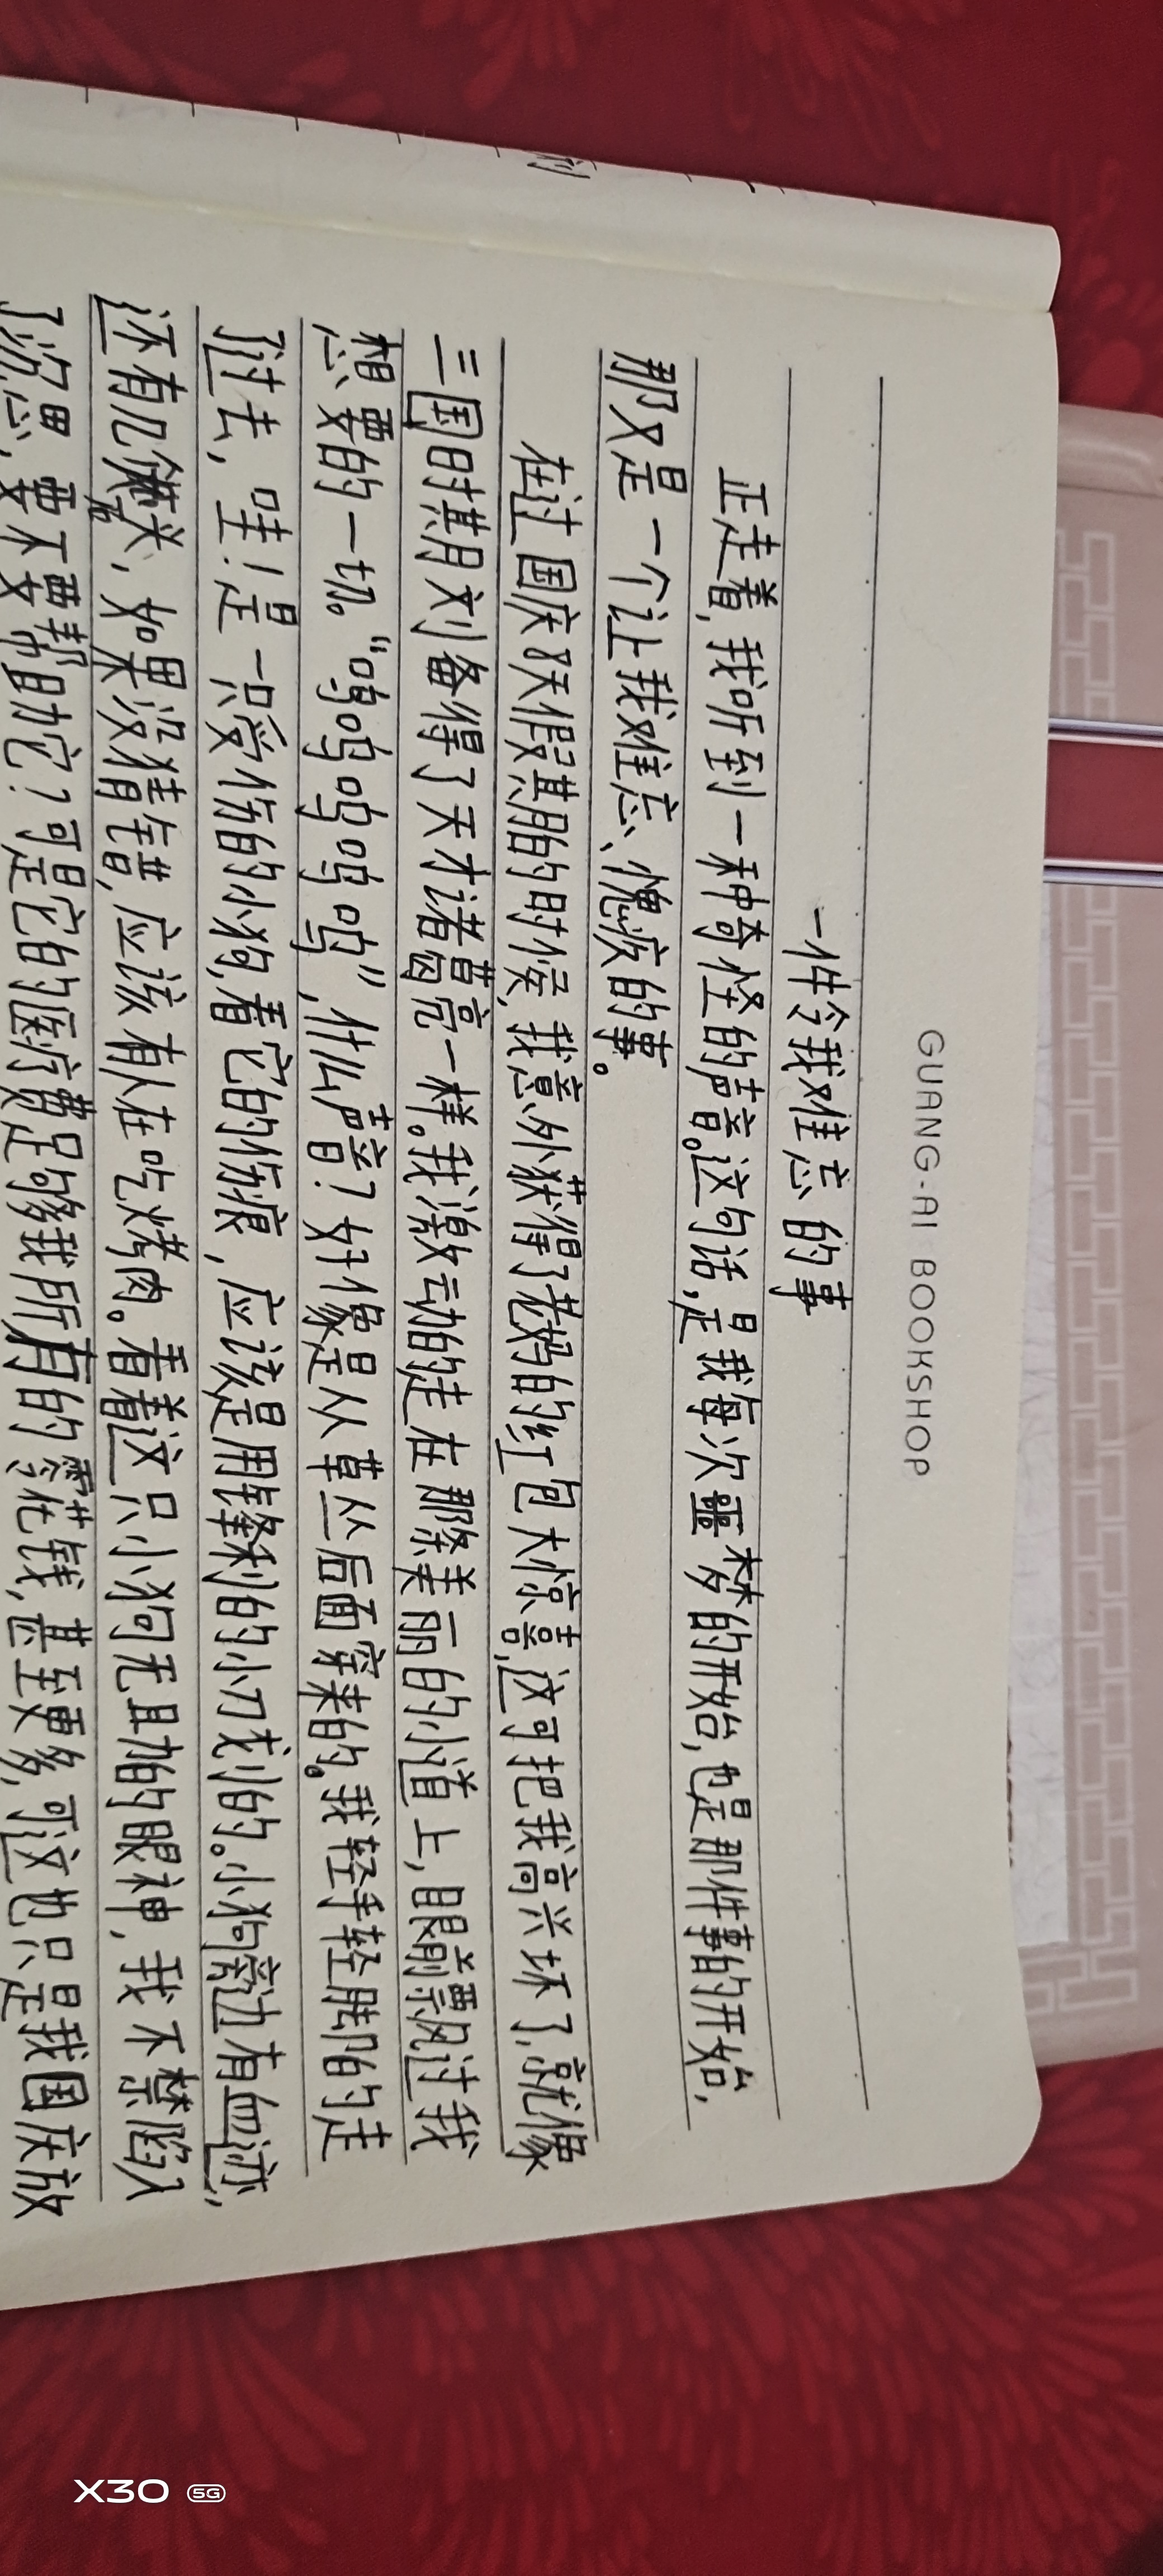 GUANG-AI BOOKSHOP
一件令我难忘的事
正走着,我听到一种奇怪的声音。这句话,是我每次噩梦的开始,也是那件事的开始,
那又是一个让我难忘、愧疚的事。
在过国庆8天假期的时候,我意外获得了老妈的红包大惊喜,这可把我高兴坏了,就像
三国时期刘备得了天才诸葛亮一样。我激动的走在那条美丽的小道上,眼前飘过我
想要的一切。“呜呜呜呜呜”,什么声音?好像是从草丛后面穿来的。我轻手轻脚的走
了过去,哇!是一只受伤的小狗,看它的伤痕,应该是用锋利的小刀划的。小狗旁边有血迹,
还有几 ,如果没猜错,应该有人在吃烤肉。看着这只小狗无助的眼神,我不禁陷入
了沉思,要不要帮助它?可是它的医疗费足够我所有的零花钱,甚至更多,可这也只是我国庆放
X30 5G